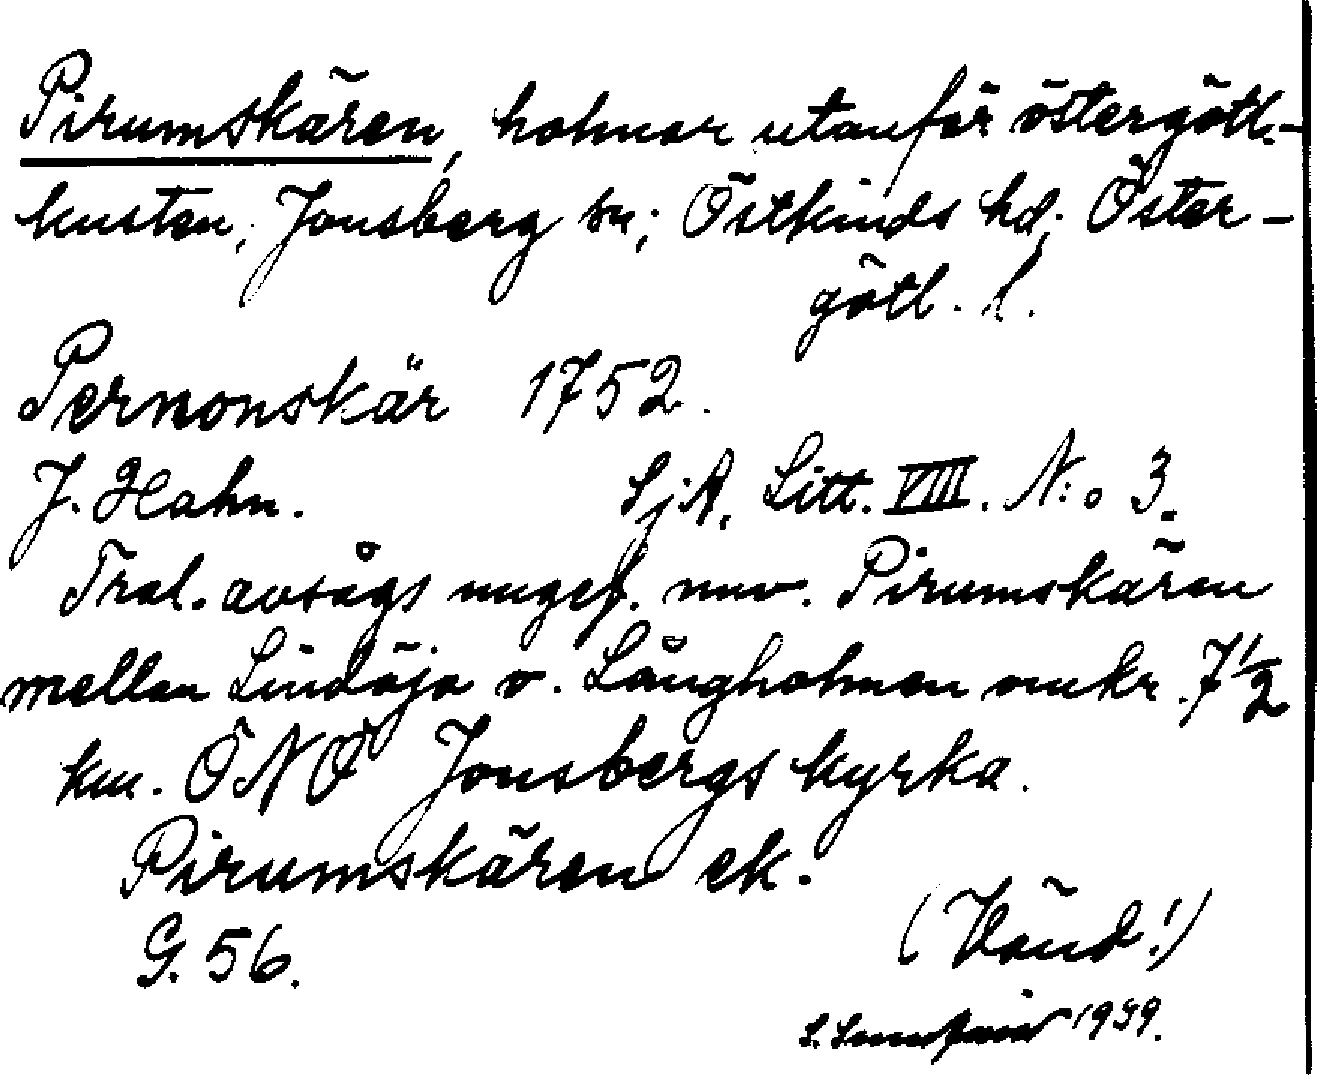 Pirumskären, holmar utanför östergötl.-
kusten, Jonsberg sn; Östkinds hd; Öster-
götl. l.
Pernonskär 1752.
J. Hahn. SjA. Litt. VIII. N:o 3.
Trol. avsågs ungef. nuv. Pirumskären
mellan Lindöja o. Långholmen omkr. 7 1/2
km. ÖNÖ Jonsbergs kyrka.
Pirumskären ek.
G. 56. (Vänd!)
1939.